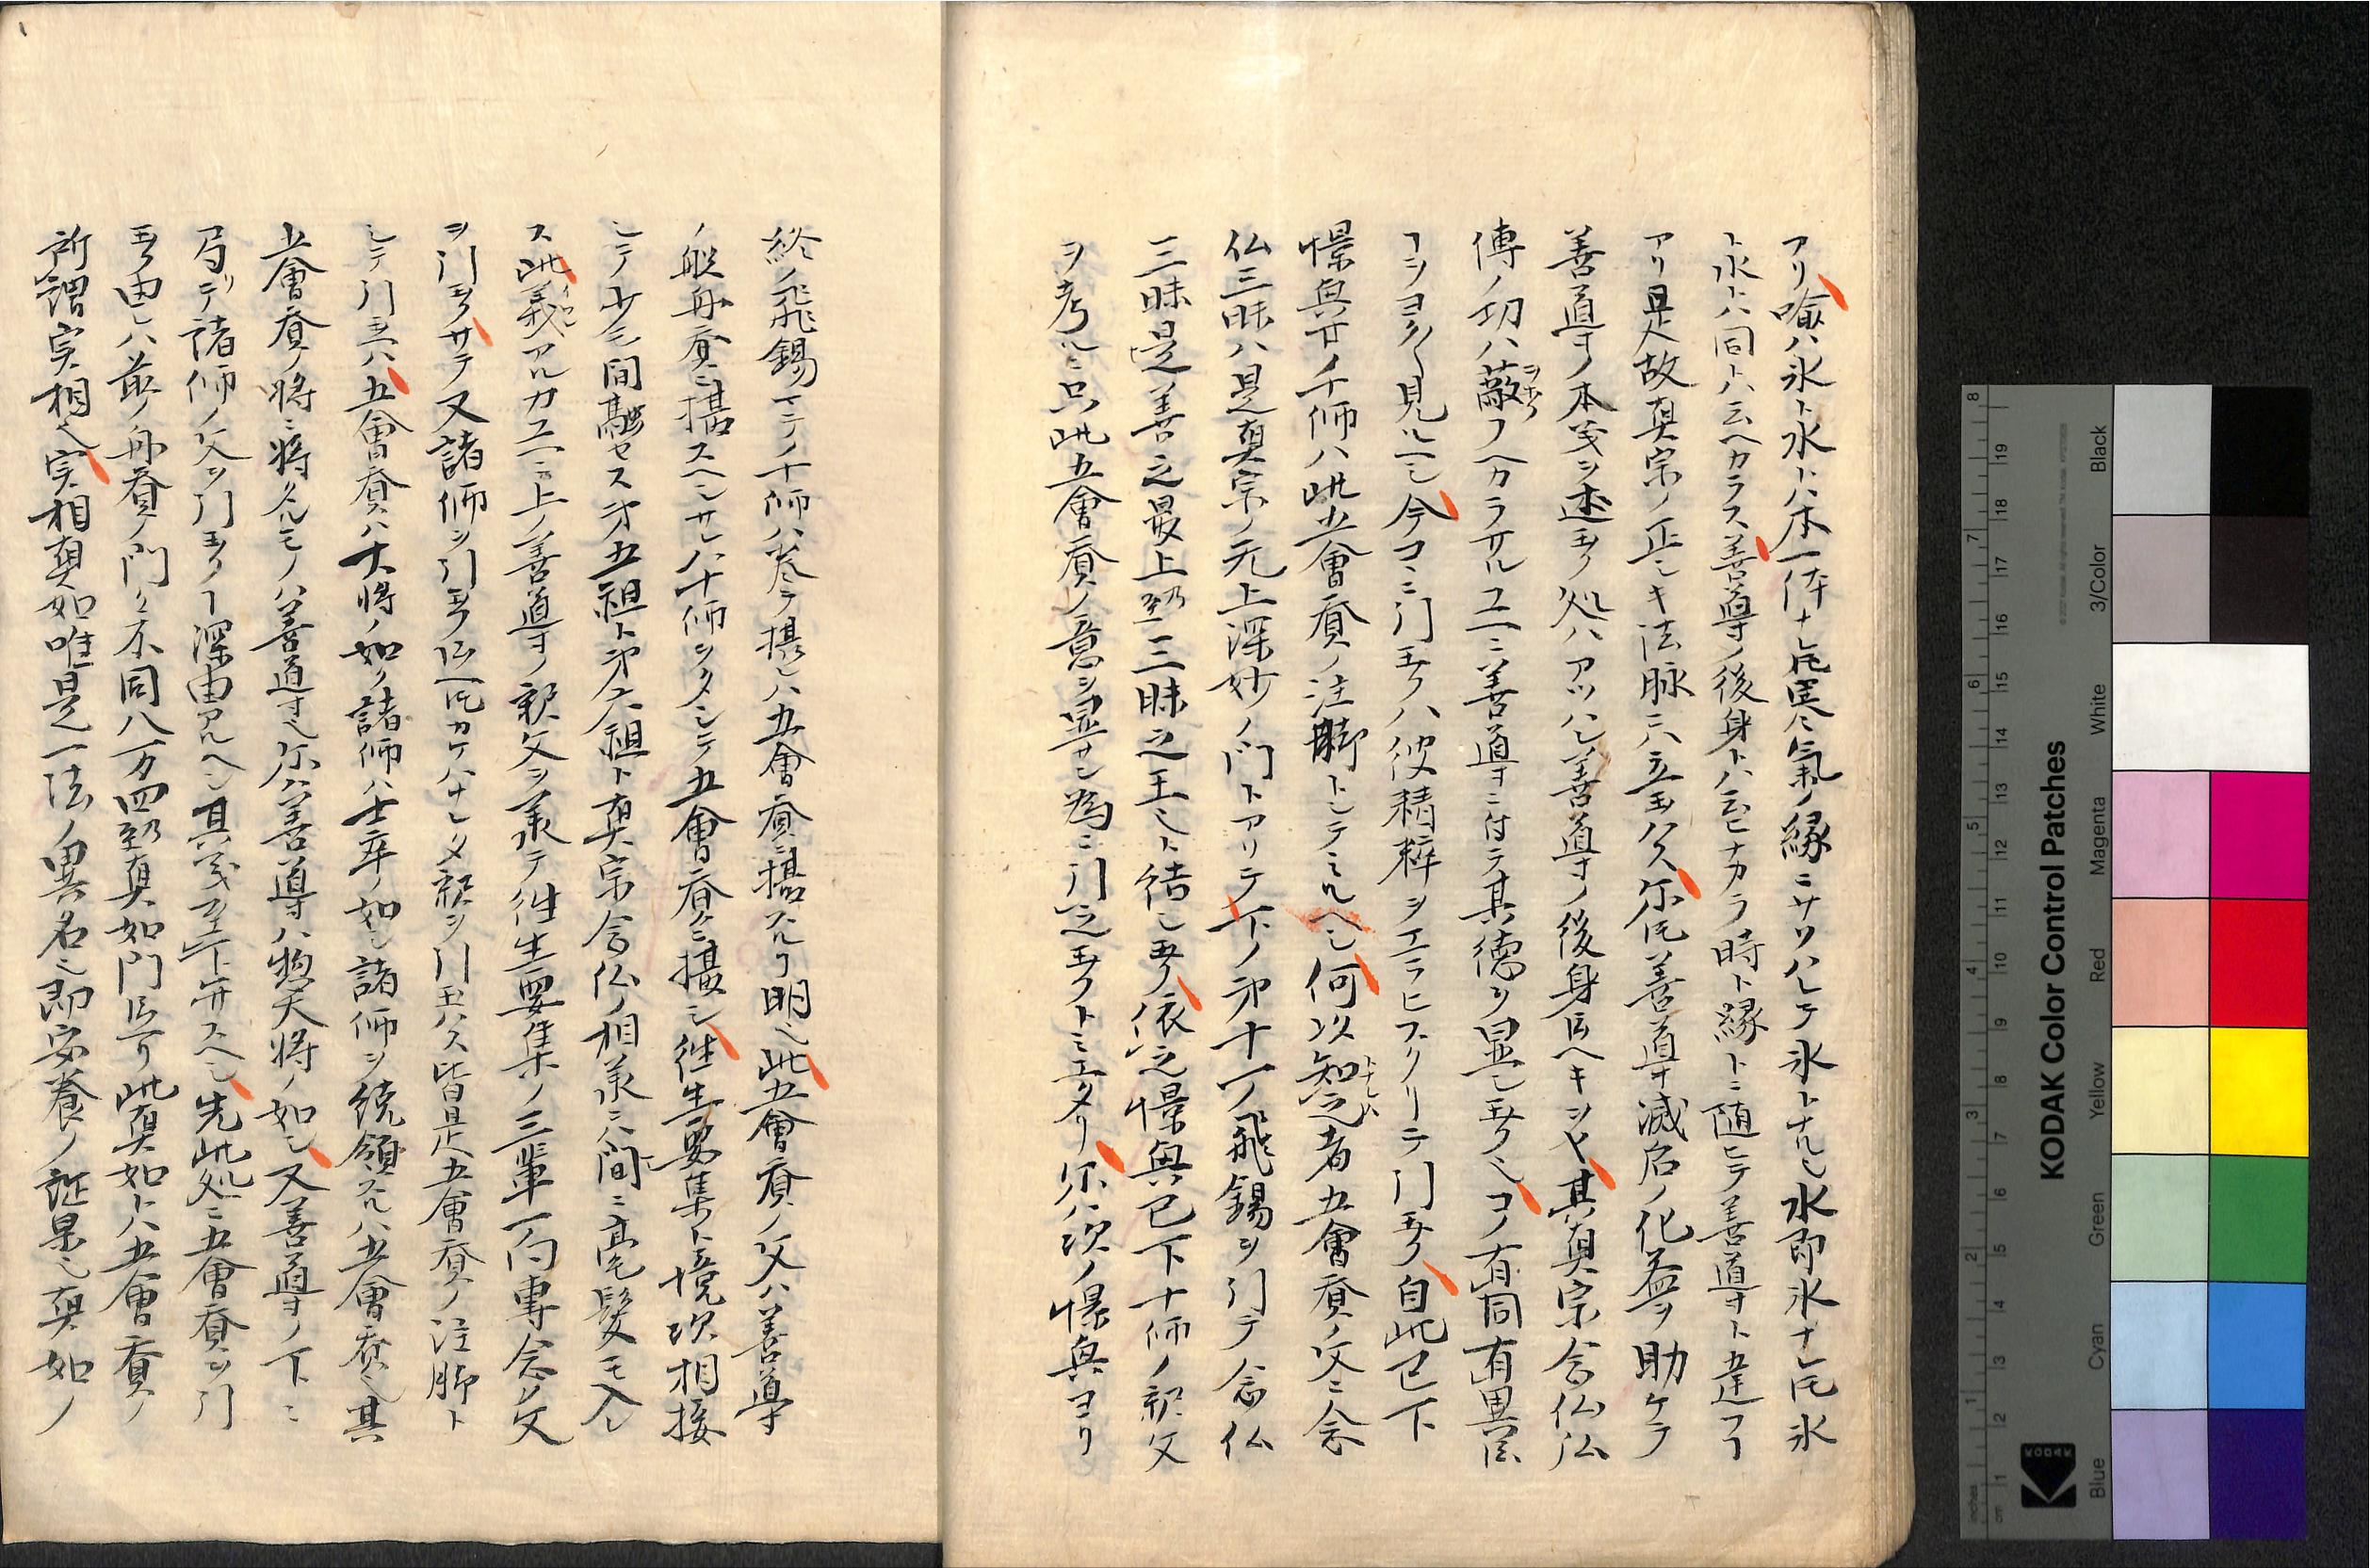 アリ喩ハ氷ト水トハ本一体ナレ𪜈寒氣ノ縁ニサソハレテ氷トナル也水即氷ナレ𪜈氷
ト水トハ同トハ云ヘカラス善導ノ後身トハ云ヒナカラ時ト縁トニ随ヒテ善導ト違フヿ
アリ是故真宗ノ正シキ法脉ニハ立玉ハス尓𪜈善導滅后ノ化益ヲ助ケテ
善導ノ本義ヲ述玉フ処ハアツハレ善導ノ後身ト云ヘキヲヤ其真宗念仏弘
傳ノ切ハ蔽フヘカラサルユヘニ善導ニ付テ其徳ヲ显シ玉フ也コノ有同有異
ヿヲヨク〱見ルヘシ今コヽニ引玉フハ彼精粹ヲエラヒスクリテ引玉フ自此已下
憬興廿ノ十師ハ此五會賛ノ注脚トシテミルヘシ何以知之者五會賛ノ文ニ念
仏三昧ハ是真宗ノ无上深妙ノ門トアリテ下ノ第十一ノ飛錫ヲ引テ念仏
三昧是善之最上乃至三昧之王也ト結シ玉フ依之憬興已下十師ノ釈文
ヲ考ルニ只此五會賛ノ意ヲ显サン為ニ引之玉フトミエタリ尓ハ次ノ憬興ヨリ
終ノ飛錫マテノ十師ハ巻テ攝レハ五會賛ニ攝スルヿ明也此五會賛ノ文ハ善導
ノ般舟賛ニ攝スヘシサレハ十師ヲタヽンテ五會賛ニ攝シ往生要集ト境次相接
シテ少モ間融セス第五祖ト第六祖ト真宗念仏ノ相承ニハ間ニ毫髪モ入レ
ス此義アルカユヘニ上ノ善導ノ釈文ヲ承テ往生要集ノ三輩一向專念ノ文
ヲ引玉フサテ又諸師ヲ引玉フ𪜈カケハナレタ釈ヲ引玉ハス皆是五會賛ノ注脚ト
シテ引玉ハ五會賛ハ大將ノ如ク諸師ハ士卒ノ如シ諸師ヲ統領スルハ五會賛也其
五會賛ノ將ニ將タルモノハ善導也尓ハ善導ハ惣大將ノ如シ又善導ノ下ニ
局テ諸師ノ文ヲ引玉フヿ深由アルヘシ其義至下弁スヘシ先此処ニ五會賛ヲ引
玉フ由レハ前ノ舟賛ノ門々不同八万四乃至真如門ト云アリ此真如トハ五會賛ノ
所謂実相也実相真如唯是一法ノ異名也即安養ノ証果也真如ノ